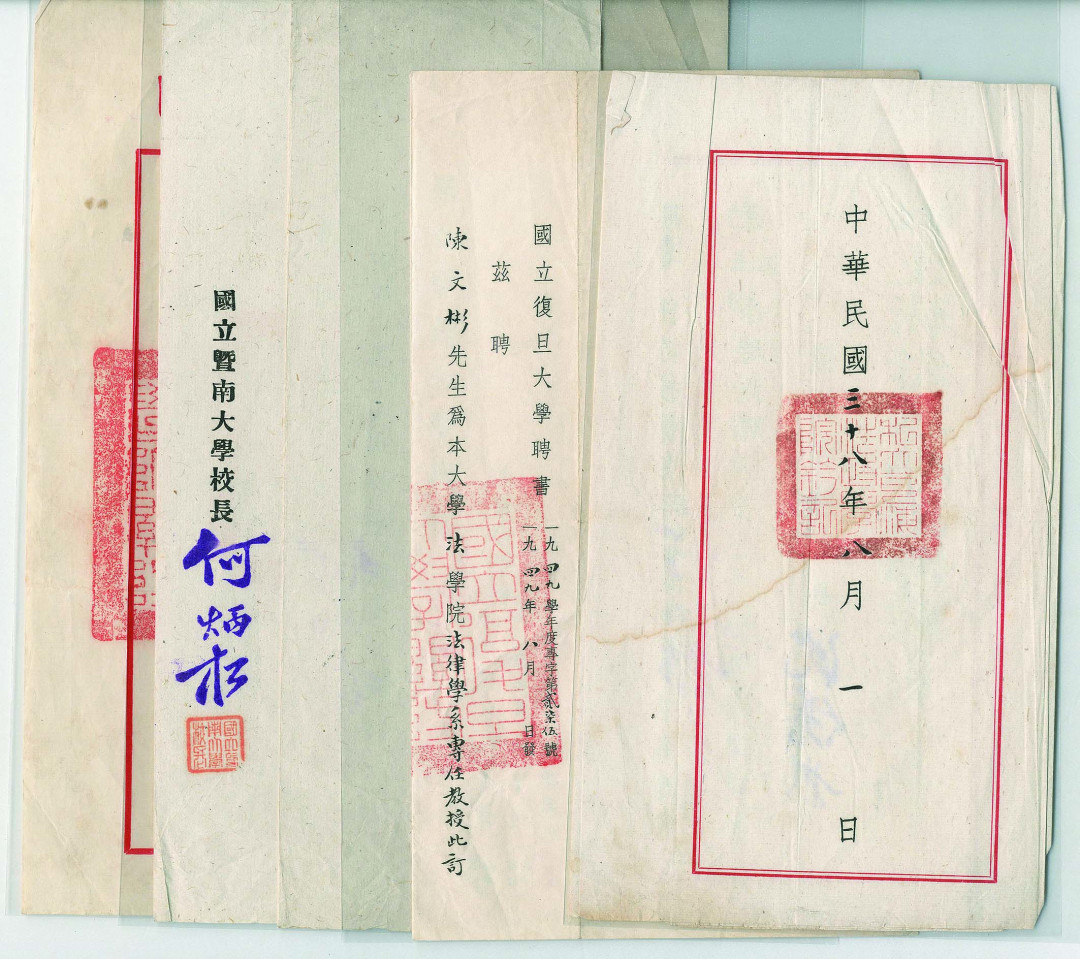 中華民國三十八年八月一日
國立復旦大學聘書
一九四九學年度專字第貳柒伍號
一九四九年八月 日發
茲聘
陳文彬先生爲本大學法學院法律學系專任教授此訂
國立暨南大學校長
何炳松